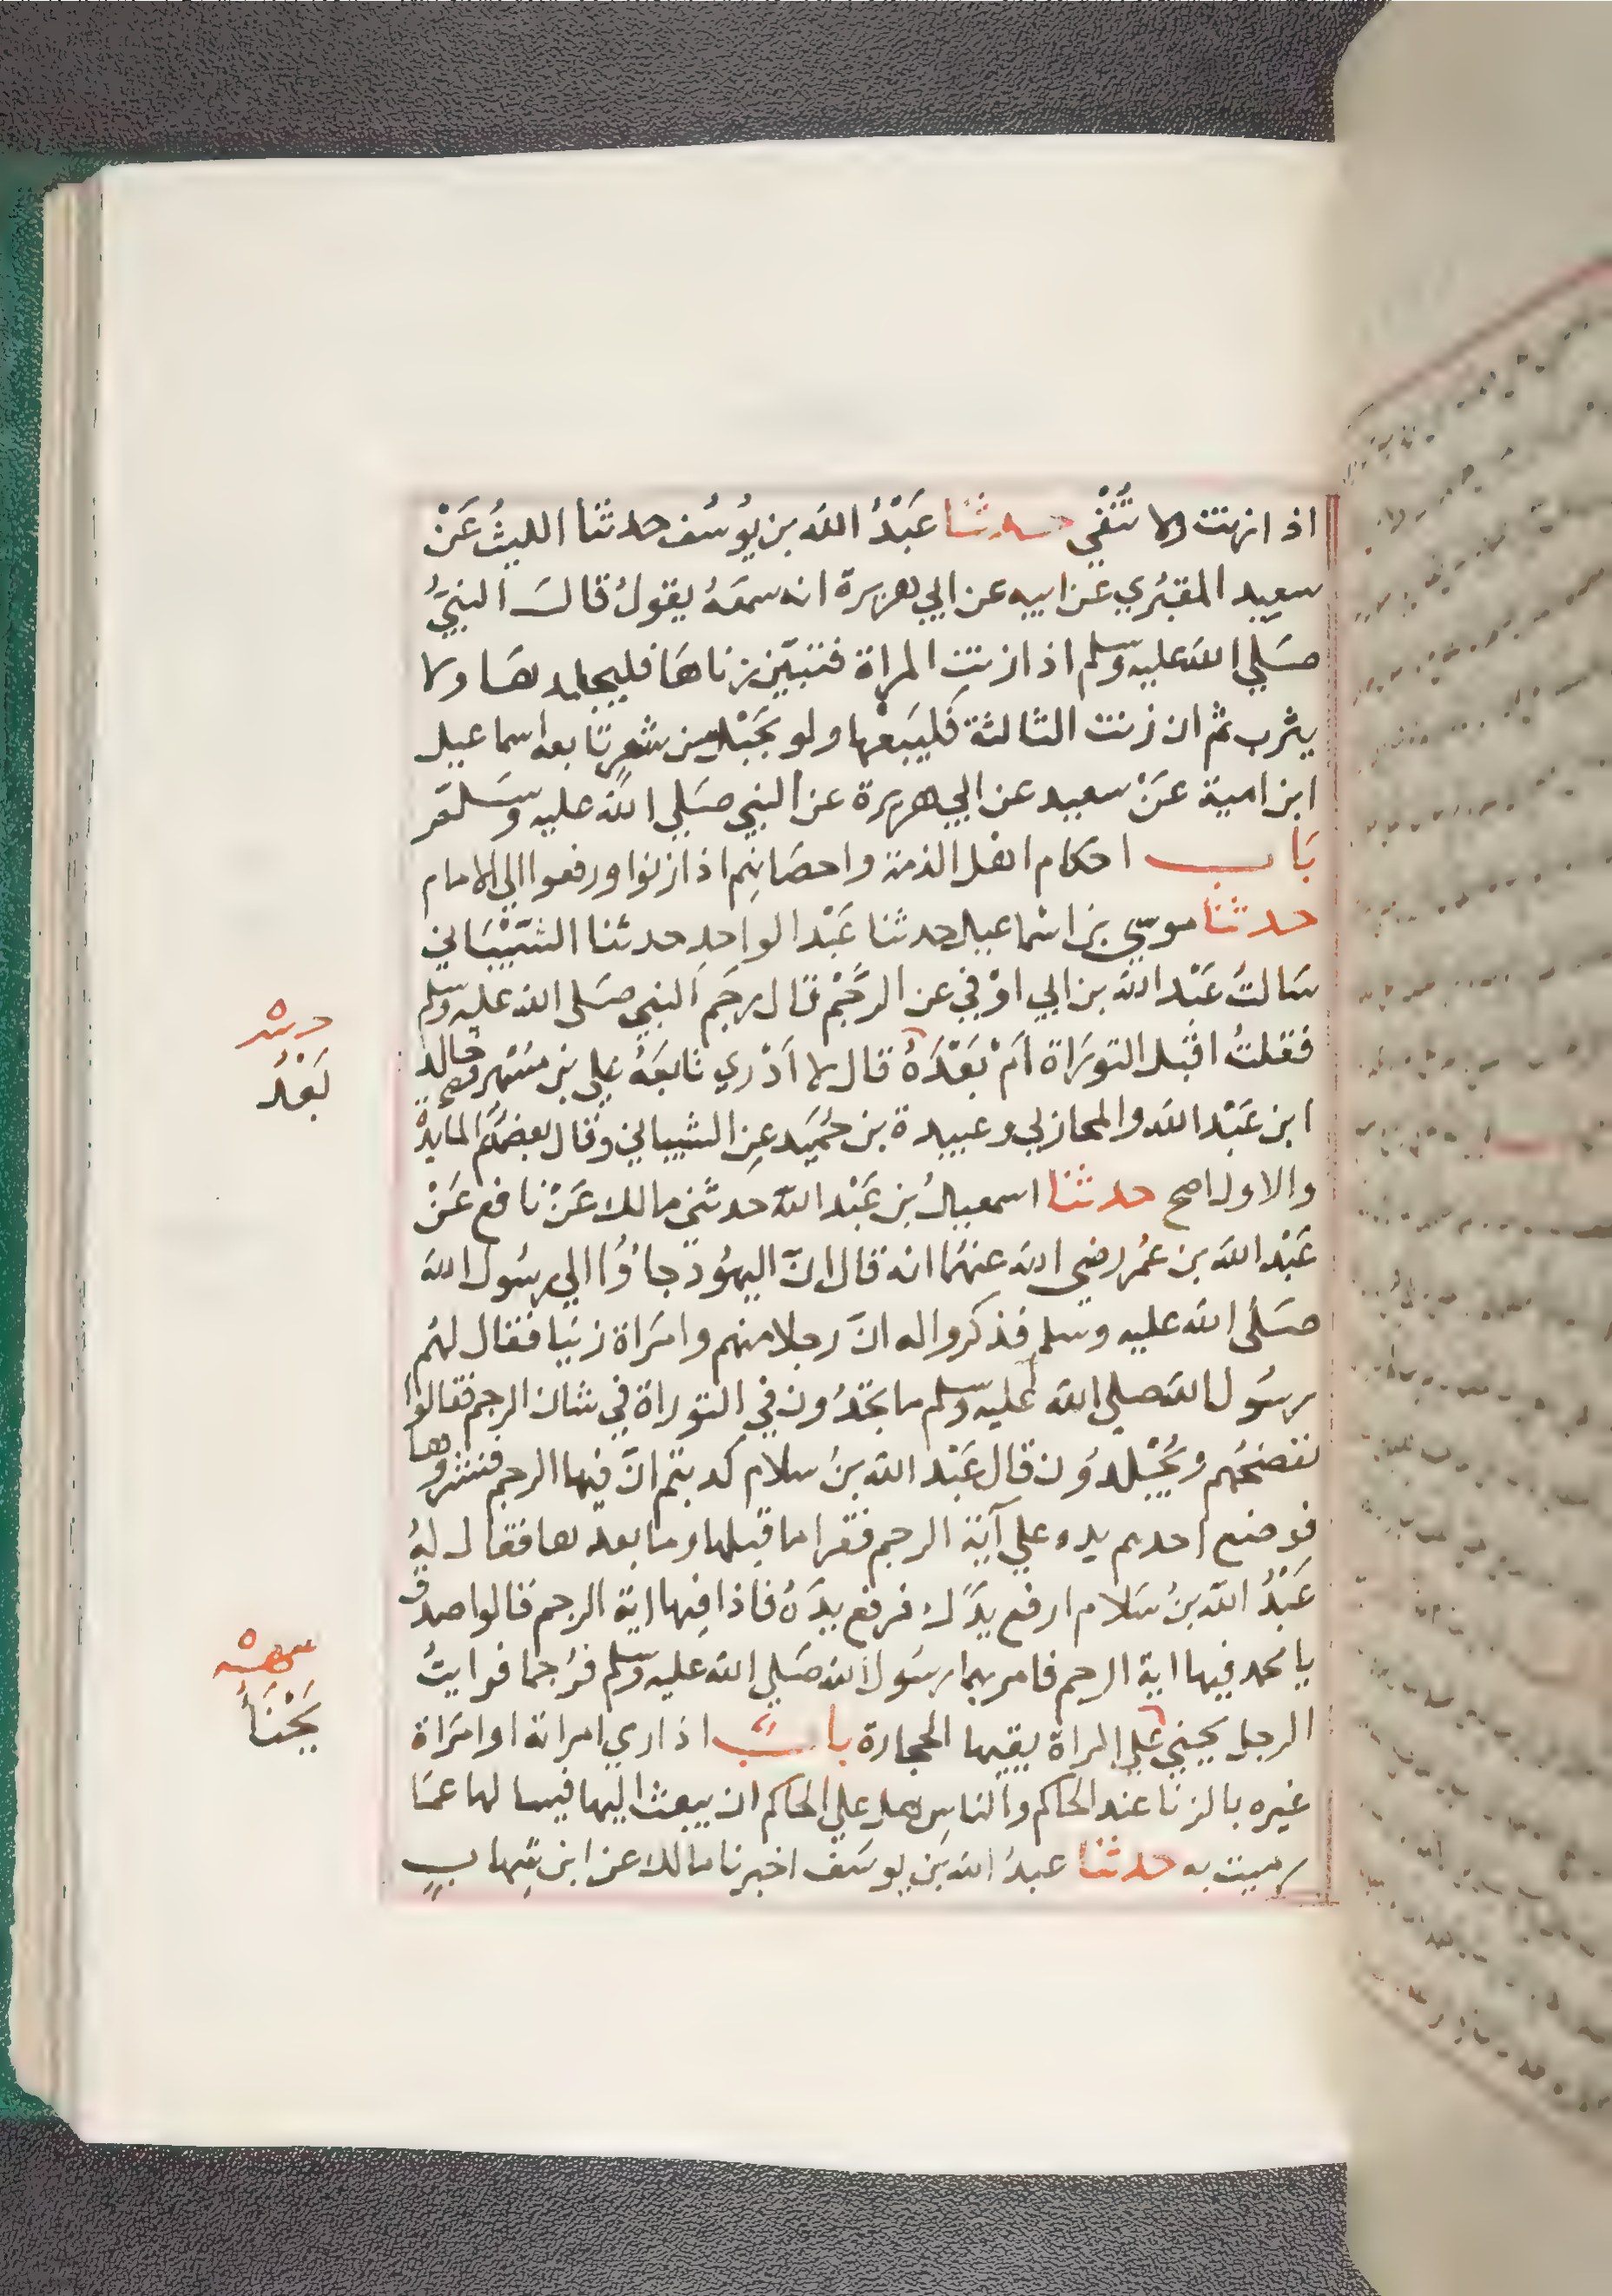 اذا زنت ولا تُنْفي حدثنا عَبْدُ الله بن يوُسُف حدثنا الليثُ عَنْ
سعيد المقبُري عن ابيه عن ابي هريرة انه سمعَهُ يقولُ قالَ النبيُّ
صَلي الله عليه وسلم اذا زنتِ المراة فتبيّن زناهَا فليجلدهَا ولا
يثرب ثم ان زنت الثالثة فَليَبعْها ولو بحَبْل من شعرٍ تابعه اسماعيل
ابن امية عَنْ سعيد عن ابي هريرة عن النبي صَلي الله عليه وَسَلم
بَاب احكام اهل الذمة واحصَانِهم اذا زنوا ورفعوا الي الامام
حدثنا موسي بن اسْماعيل حدثنا عَبْد الواحدِ حدثنا الشَّيْبَاني
سَالتُ عَبْد الله بن ابي اوْفي عن الرَّجْم قال رجَم النبي صَلى الله عليه وسلم
فقلتُ اقبْل التورَاة اَمْ بَعْدَهُ قال لا اَدْري تابَعَهُ علي بن مُسْهر وخالد
ابن عَبْد الله والمحاربي وعبيدة بن حُمَيْد عِن الشيباني وقال بعضهُم المايدة
والاول اصح حدثنا اسمعيلُ بن عَبْد الله حدثني مالك عَنْ نافع عَنْ
عَبْد الله بن عمُر رضي الله عنهُما انه قال انّ اليهوُد جاؤُا الي رسُول الله
صَلى الله عليه وسلم فذكروا له انَّ رجلا منهم وامَراة زنيَا فقال لهُم
رسُول الله صلي الله عليه وسلم ما تجدُون في التوراة في شان الرجم فقالوا
نفضحُهم ويُجْلدوُن قال عَبْد الله بنُ سلام كذبتم انّ فيها الرجم فنشروها
فوضع احدهم يده علي آية الرجم فقرا ما قبلها وما بعدها فقال لهُ
عَبْدُ الله بنُ سَلام ارفع يدَك فرفع يدَهُ فاذا فِيها اية الرجم قالوا صدق
يا محمد فيها اية الرجم فامر بهما رسَول الله صَلي الله عليه وسلم فرُجما فرايتُ
الرجل يحني علي المراة يقيها الحجارة بابُ اذا رمي امراته او امرَاة
غيره بالزنا عند الحاكم والناسِ هل علي الحاكم ان يبعث اليها فيسالها عمَا
رميت به حدثنا عبدُ الله بَن يوسَف اخبرنا مالك عن ابن شِهابٍ
بَعْدُ
يَجْنَأُ